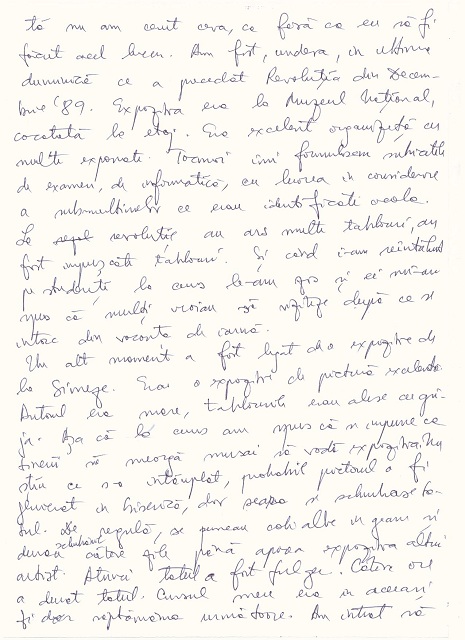 tă nu am cerut ceva, ca fără ca eu să fi
făcut acel lucru. Am fost, undeva, în ultima
duminică ce a precedat Revoluția din Decem-
brie '89. Expoziția era la Muzeul Național,
cocoțată la etaj. Era excelent organizată cu
multe exponate. Tocmai îmi formulasem subiectele
de examen, de informatică, cu luarea în considerare
a submulțimilor ce erau identificate acolo.
La revoluție au ars multe tablouri, au
fost împușcate tablouri. Și când i-am reîntâlnit
pe studenți la curs le-am zis și ei mi-au
spus că mulți vroiau să viziteze după ce se
întorc din vacanța de iarnă.
Un alt moment a fost legat de o expoziție de
la Simeza. Era o expoziție de pictură excelentă.
Autorul era mare, tablourile erau alese cu gri-
jă. Așa că la curs am spus că se impune ca
tinerii să meargă musai să vadă expoziția. Nu
știu ce s-a întâmplat, probabil pictorul a fi
fluierat în biserică, dar seara se schimbase to-
tul. De regulă, se puneau coli albe în geam și
dura schimbarea câteva zile până apărea expoziția altui
artist. Atunci totul a fost fulger. Câteva ore
a durat totul. Cursul meu era în aceeași
zi doar săptămâna următoare. Am intrat să